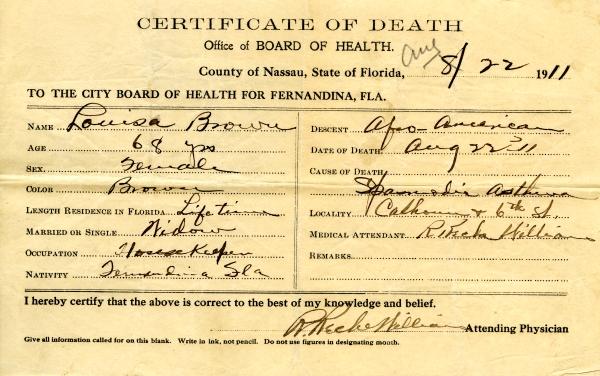 CERTIFICATE OF DEATH
Office of BOARD OF HEALTH.
County of Nassau, State of Florida, Aug 8/22 1911
TO THE CITY BOARD OF HEALTH FOR FERNANDINA, FLA.
NAME Louisa Brown
AGE 68 yrs
SEX Female
COLOR Brown
LENGTH RESIDENCE IN FLORIDA Life time
MARRIED OR SINGLE Widow
OCCUPATION House Keeper
NATIVITY Fernandina Fla
DESCENT Afro-American
DATE OF DEATH Aug 22" 11
CAUSE OF DEATH
Spasmodic Asthma
LOCALITY Calhoun & 6th St.
MEDICAL ATTENDANT Williams
REMARKS
I hereby certify that the above is correct to the best of my knowledge and belief.
Williams Attending Physician
Give all information called for on this blank. Write in ink, not pencil. Do not use figures in designating month.